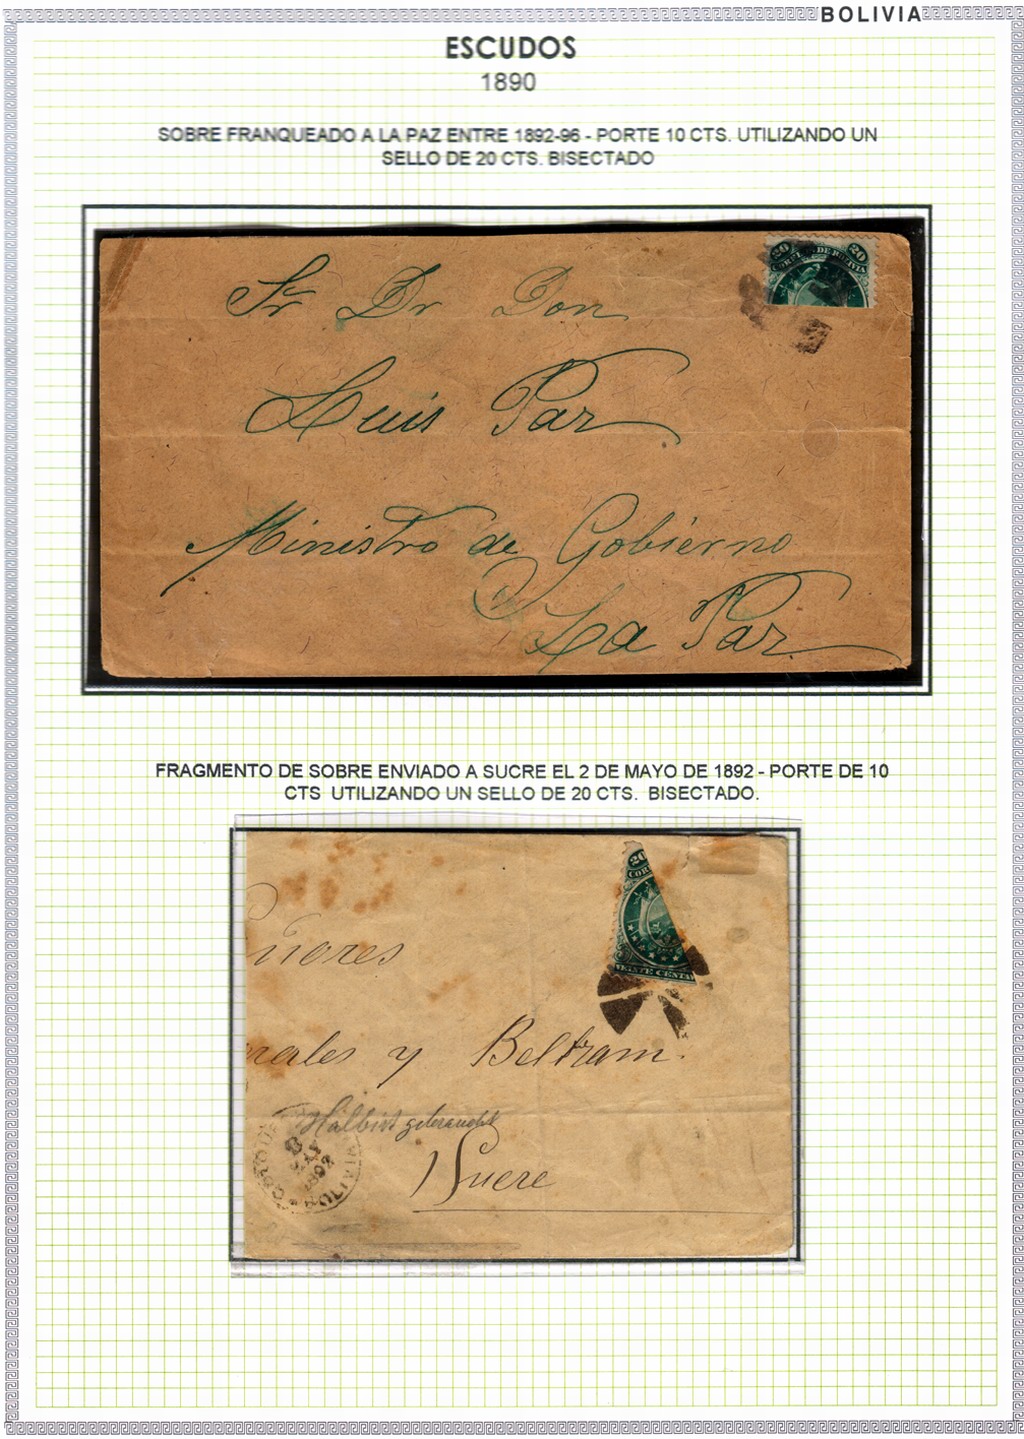 BOLIVIA
ESCUDOS
1890
SOBRE FRANQUEADO A LA PAZ ENTRE 1892-96 - PORTE 10 CTS. UTILIZANDO UN
SELLO DE 20 CTS. BISECTADO
20 20
CORREOS DE BOLIVIA
Sr Dr Don
Luis Paz
Ministro de Gobierno
La Paz
FRAGMENTO DE SOBRE ENVIADO A SUCRE EL 2 DE MAYO DE 1892 - PORTE DE 10
CTS UTILIZANDO UN SELLO DE 20 CTS. BISECTADO.
20
COR
VEINTE CENTA
ñores
rales y Beltram.
Halbirt gebraucht
Sucre